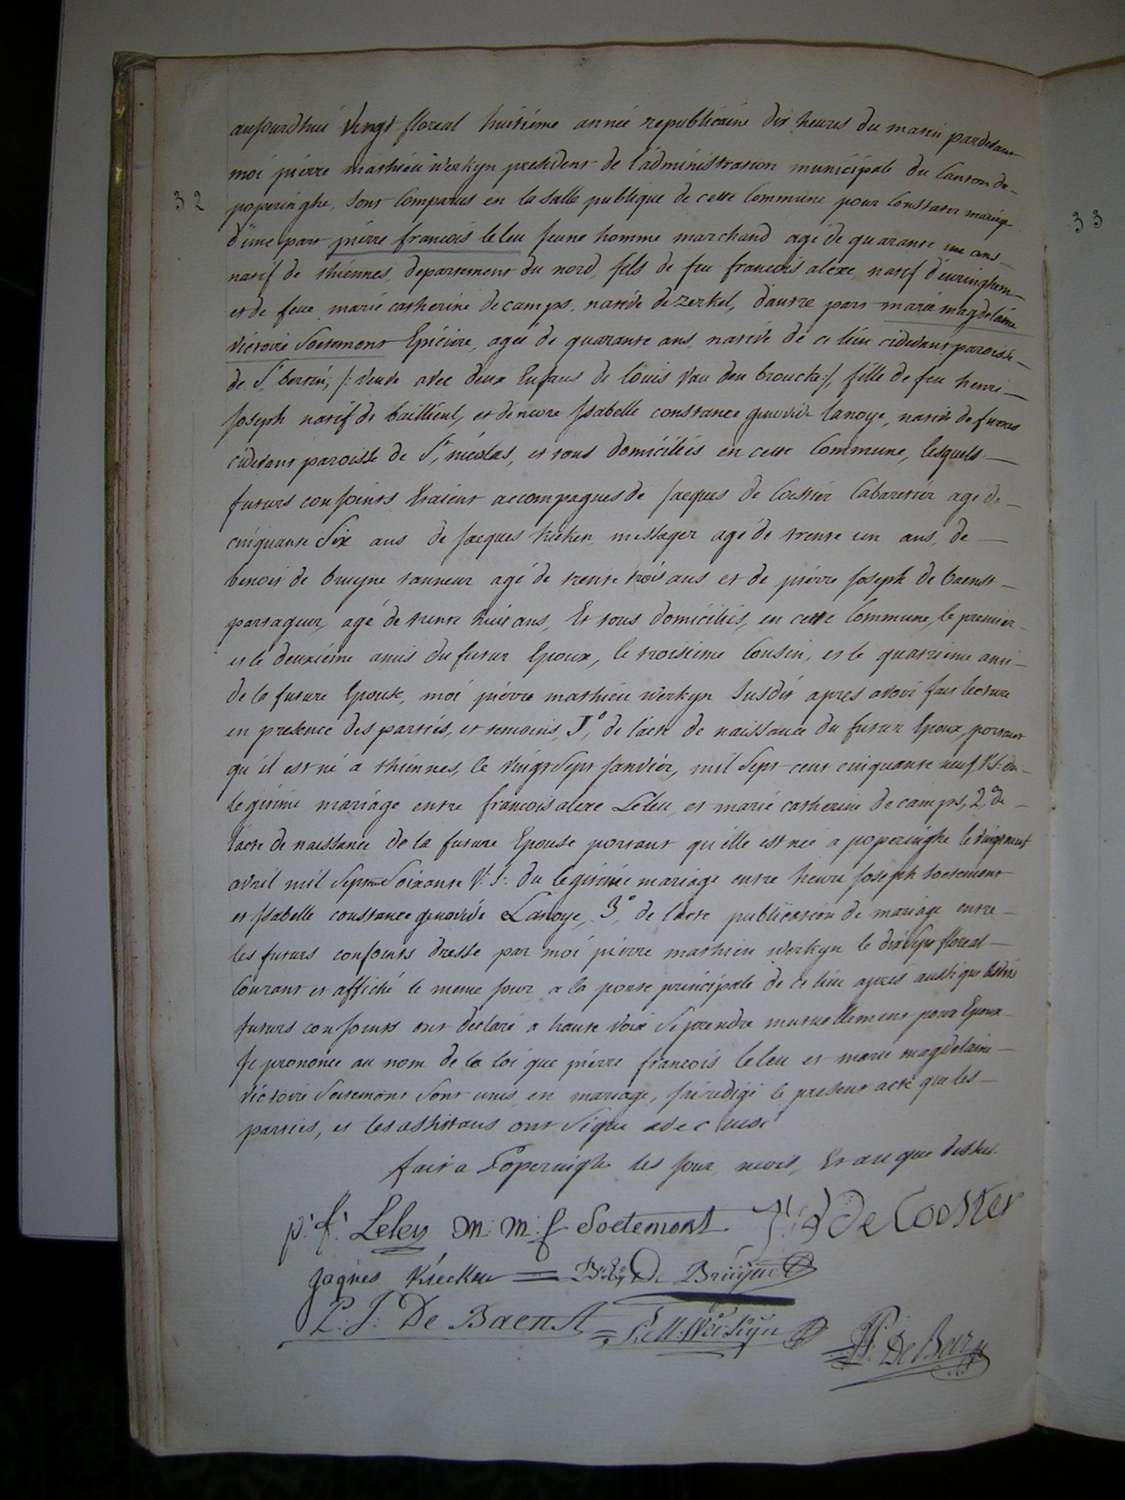 aujourdhui vingt floreal huitiéme année republicaine dix heures du matin pardevant
moi pierre mathieu werkyn president de l'administration municipale du Canton de
32
poperinghe, sont comparus en la salle publique de cette Commune pour constater mariage
33
d'une part pierre francois leleu jeune homme marchand agé de quarante un ans
natif de thiennes, departement du nord, fils de feu francois alexe natif d'euringhem
et de feue marie catherine decamps, native de zerkel, d'autre part marie magdelaine
victoire Soetemont Epiciere, agée de quarante ans, native de ce lieu cidevant paroisse
de St bertin, /: veuve avec deux Enfans de louis van den broucke :/, fille de feu henri
Joseph natif de bailleul, et d'encore Isabelle constance genovive lanoye, native de furnes
cidevant paroisse de St nicolas, et tous domiciliés en cette Commune, lesquels
futurs conjoints étaient accompagnes de Jacques de Coster Cabaretier agé de
cinquante Six ans de Jacques kieken messager agé de trente un ans, de
benoit de bruyne tanneur agé de trente trois ans et de pierre Joseph de baenst
partageur, agé de trente huit ans, Et tous domiciliés, en cette Commune, le premier
et le deuxiéme amis du futur Epoux, le troisieme Cousin, et le quatrieme ami
de la future Epouse, moi pierre mathieu werkyn susdit apres avoir fait lecture
en presence des parties, et temoins, 1° de l'acte de naissance du futur Epoux, portant
qu'il est né a thiennes, le vingt Sept Janvier, mil Sept cent cinquante neuf V.S. du
legitime mariage entre francois alexe Leleu et marie catherine decamps, 2° de
l'acte de naissance de la future Epouse portant qu'elle est née a poperinghe le vingt neuf
avril mil Sept Soixante V.S. du legitime mariage entre henri Joseph Soetemont
et Isabelle constance genovive Lanoye, 3° de l'acte publication de mariage entre
les futurs conjoints dressé par moi pierre mathieu werkyn le dix Sept floreal
Courant et affiché le meme jour a la porte principale de ce lieu apres aussi que lesdits
futurs conjoints ont declaré a haute voix Se prendre mutuellement pour Epoux
Je prononce au nom de la loi que pierre francois leleu et marie magdelaine
victoire Soetemont Sont unis en mariage, j'ai redigé le present acte que les
parties, et les assistans ont Signé avec
fait a Poperinghe les jour, mois, Et an que dessus
p. f. Leleu m: m: f Soetemont J: De Coster
Jaques Kiecken De Bruyne
P. J: De Baenst P. M. Werkyn